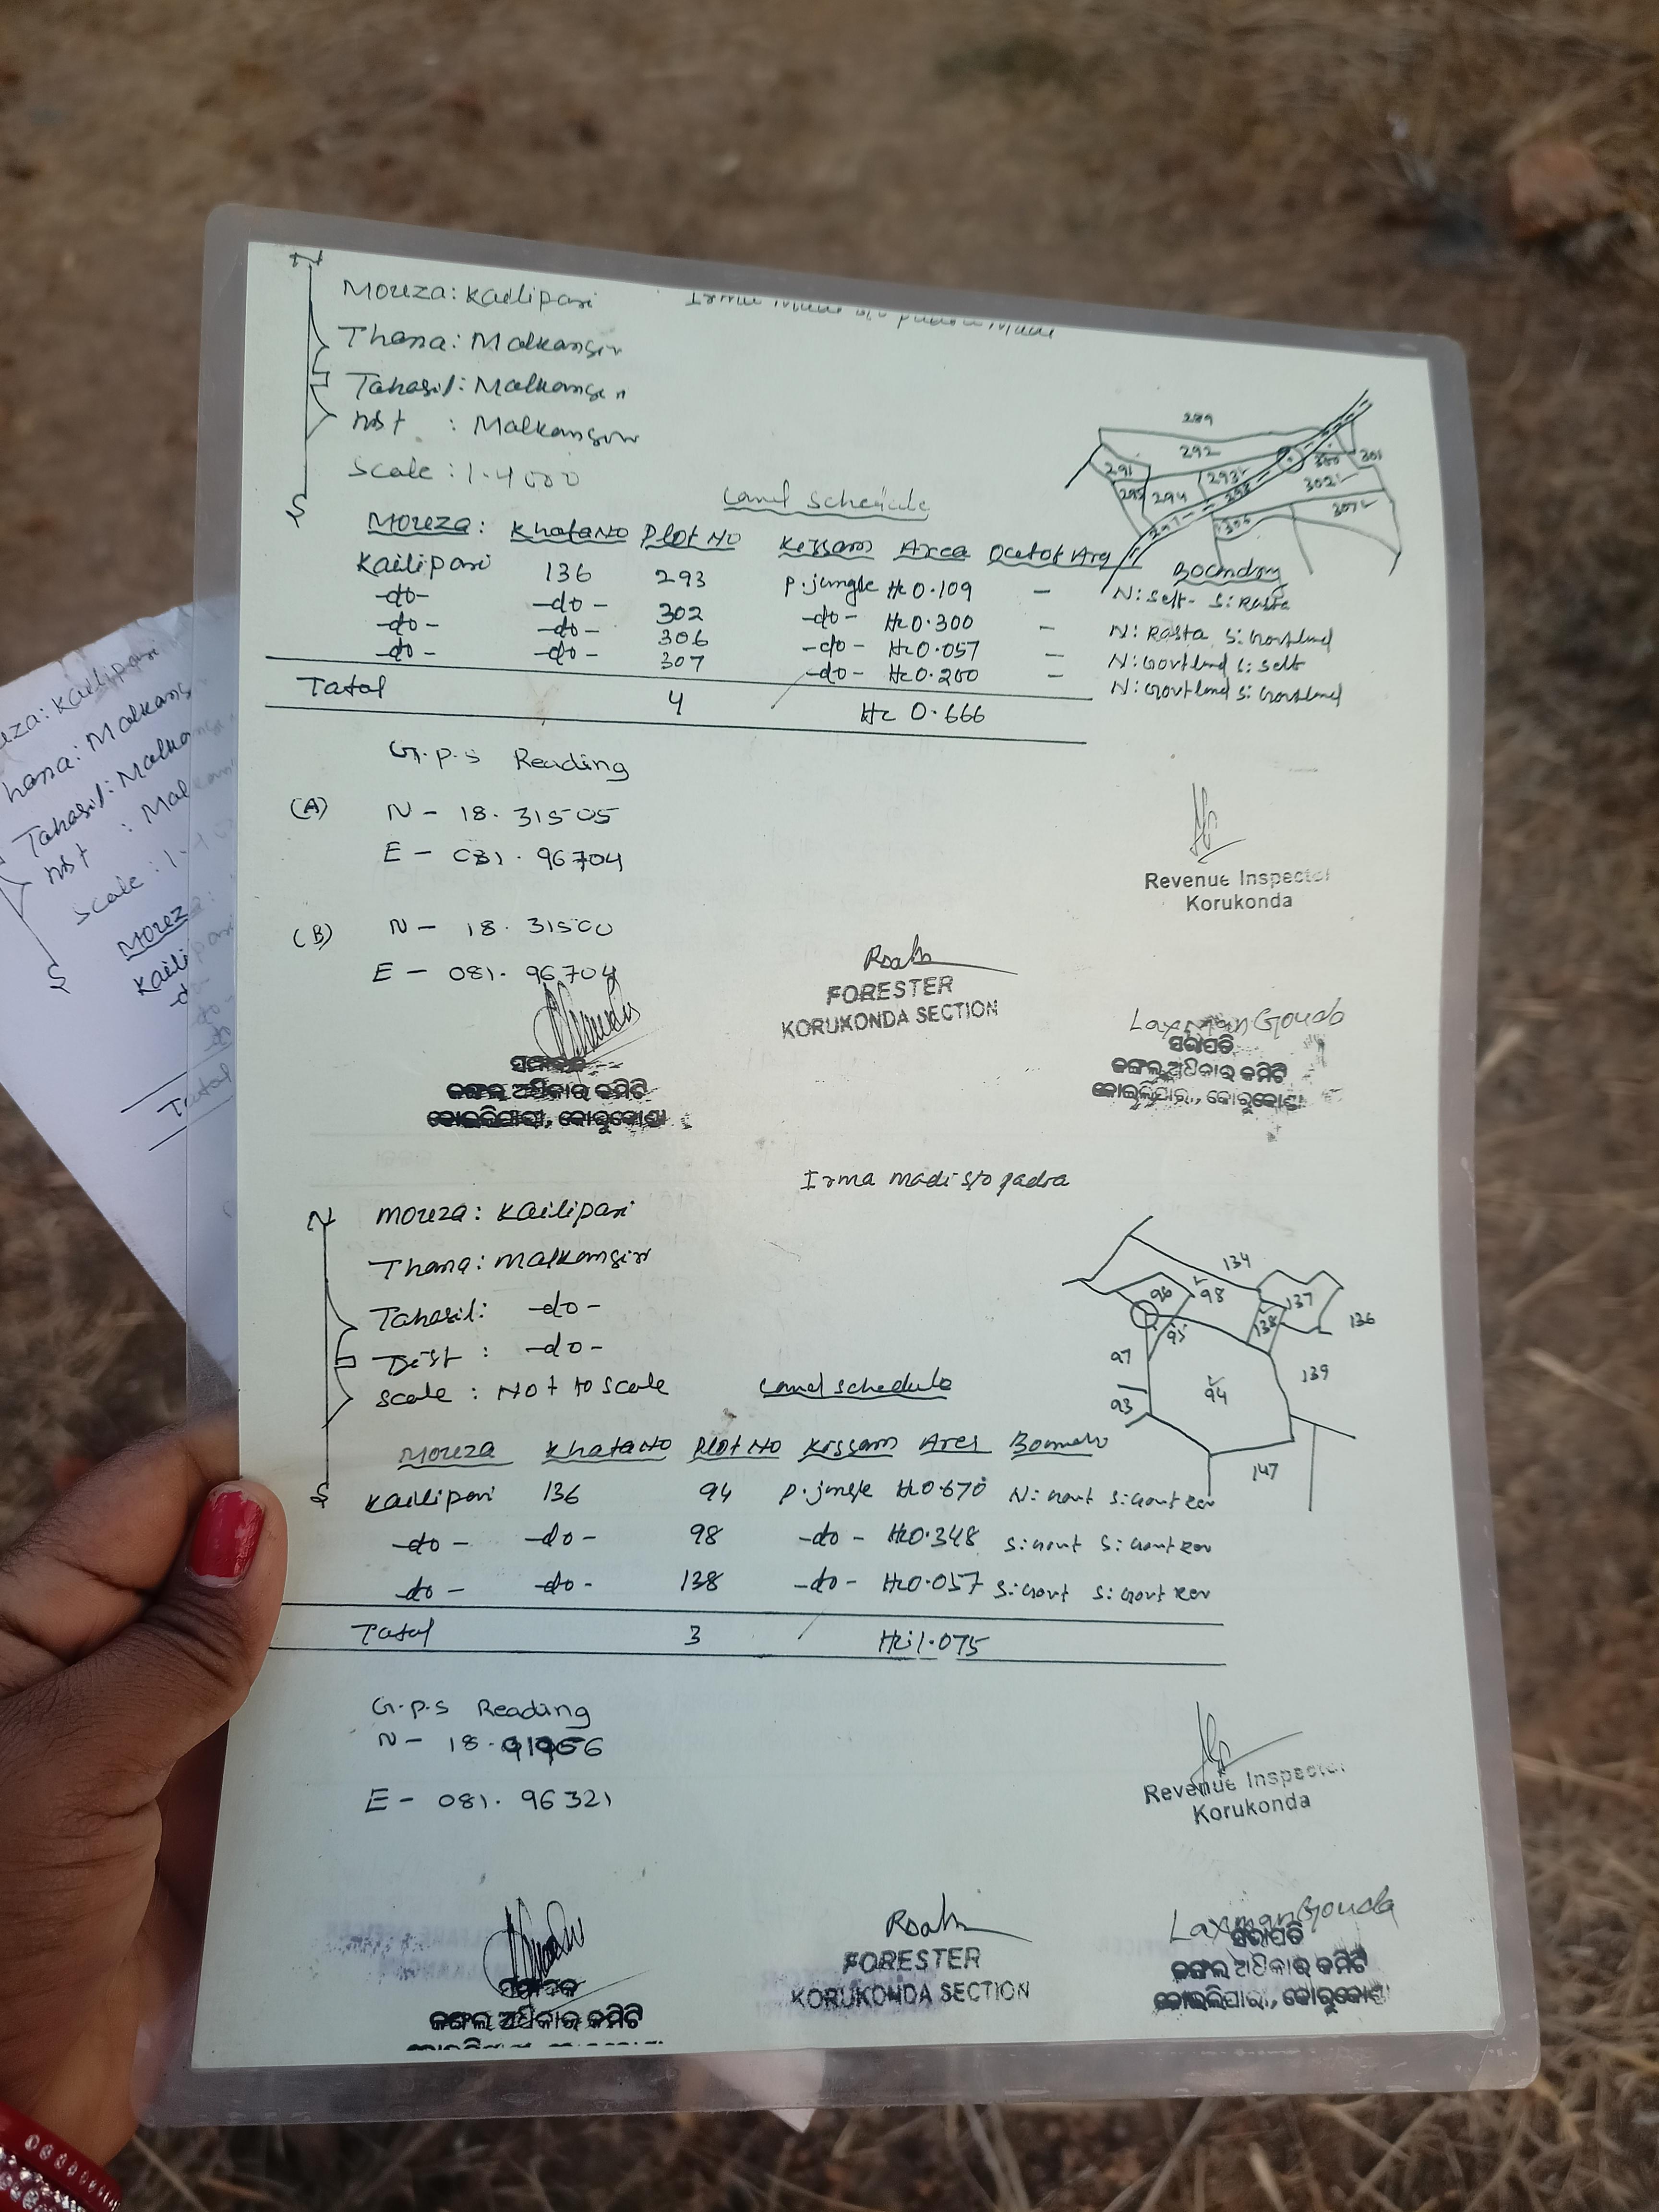 N
Mouza: Kailipari
Thana: Malkangiri
Tahasil: Malkangiri
Dist : Malkangiri
Scale : 1-4000
S
289
292
291
293
294
298
300
301
302
307
306
297
Land Schedule
Mouza: Khata No Plot No Kissam Area Boundry
Kailipari 136 293 P.jungle Hc 0.109 - N: Self- S: Rasta
-do- -do- 302 -do- Hc 0.300 - N: Rasta S: Govt land
-do- -do- 306 -do- Hc 0.057 - N: Govt land S: Self
-do- -do- 307 -do- Hc 0.200 - N: Govt land S: Govt land
Total 4 Hc 0.666
G.P.S Reading
(A) N - 18. 31505
E - 081. 96704
(B) N - 18. 31500
E - 081. 96704
Revenue Inspector
Korukonda
FORESTER
KORUKONDA SECTION
Laxman Gouda
ସଭାପତି
ଜଙ୍ଗଲ ଅଧିକାର କମିଟି
କୋଇଲିପାରୀ, କୋରୁକୋଣ୍ଡା
ସମ୍ପାଦକ
ଜଙ୍ଗଲ ଅଧିକାର କମିଟି
କୋଇଲିପାରୀ, କୋରୁକୋଣ୍ଡା
Irma madi s/o padra
N
Mouza: Kailipari
Thana: Malkangiri
Tahasil: -do-
Dist : -do-
Scale : Not to scale
S
134
96
98
137
138
136
95
97
139
94
93
147
Land schedule
Mouza Khata No Plot No Kissam Area
Kailipari 136 94 P.jungle Hc 0.670 N: Govt S: Govt Rev
-do- -do- 98 -do- Hc 0.348 S: Govt S: Govt Rev
-do- -do- 138 -do- Hc 0.057 S: Govt S: Govt Rev
Total 3 Hc 1.075
G.P.S Reading
N - 18.
E - 081. 96321
Revenue Inspector
Korukonda
FORESTER
KORUKONDA SECTION
Laxman Gouda
ସଭାପତି
ଜଙ୍ଗଲ ଅଧିକାର କମିଟି
କୋଇଲିପାରୀ, କୋରୁକୋଣ୍ଡା
ସମ୍ପାଦକ
ଜଙ୍ଗଲ ଅଧିକାର କମିଟି